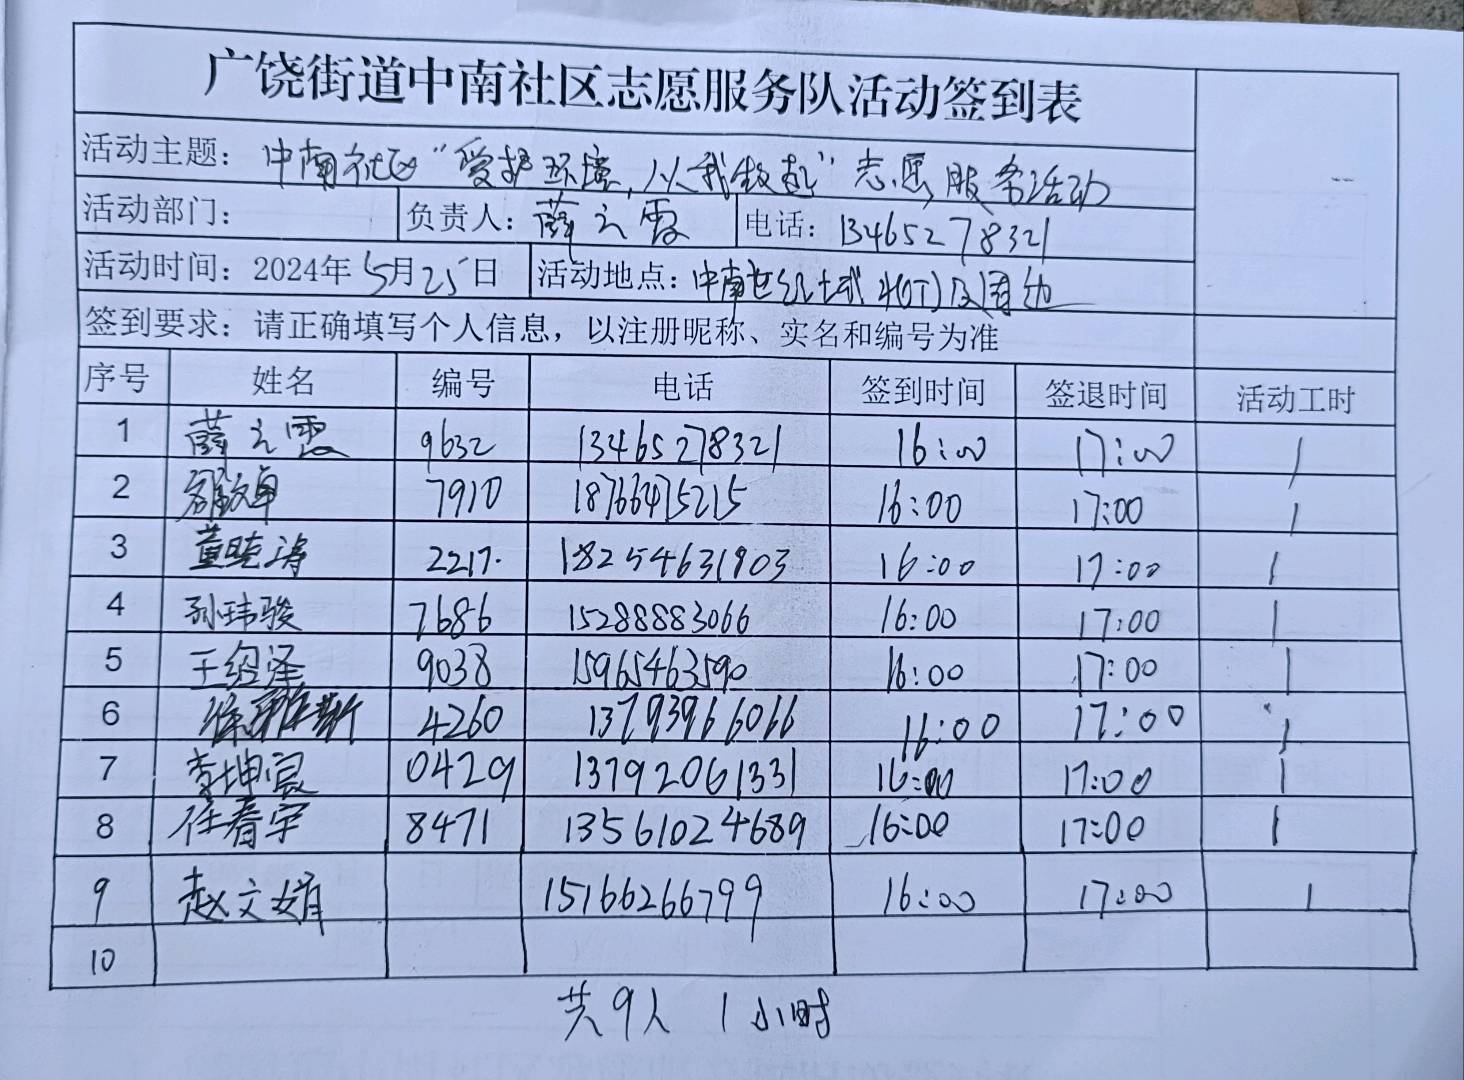 广饶街道中南社区志愿服务队活动签到表
活动主题：中南社区“爱护环境，从我做起”志愿服务活动
活动部门： 负责人：薛之霞 电话：13465278321
活动时间：2024年5月25日 活动地点：中南世纪城 及周边
签到要求：请正确填写个人信息，以注册昵称、实名和编号为准
序号 姓名 编号 电话 签到时间 签退时间 活动工时
1 薛之霞 9632 13465278321 16:00 17:00 1
2 7910 18766475215 16:00 17:00 1
3 董晓涛 2217 18254631903 16:00 17:00 1
4 孙玮骏 7686 15288883066 16:00 17:00 1
5 王绍泽 9038 15965463590 16:00 17:00 1
6 4260 13793966066 16:00 17:00 1
7 李坤宸 0429 13792061331 16:00 17:00 1
8 任春宇 8471 13561024689 16:00 17:00 1
9 赵文娟 15166266799 16:00 17:00 1
10
共9人 1小时